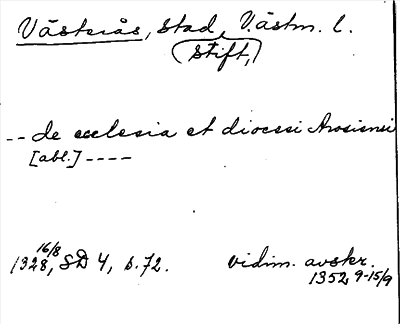 Västerås, stad, Västm. l.
(stift,)
-- de ecclesia et diocesi Arosiensi
[abl.] ----
16/8
1328, SD 4, s. 72. vidim. avskr.
1352 9-15/9